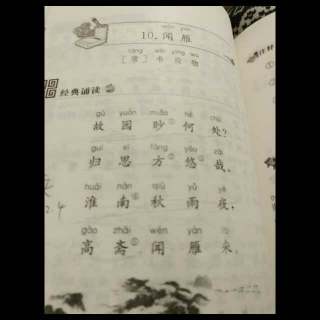 wén yàn
10. 闻雁
táng wéi yìng wù
［唐］韦应物
经典诵读
gù yuán miǎo hé chù
故园眇①何处？
guī sī fāng yōu zāi
归思方悠②哉。
huái nán qiū yǔ yè
淮南③秋雨夜，
gāo zhāi wén yàn lái
高斋④闻雁来。